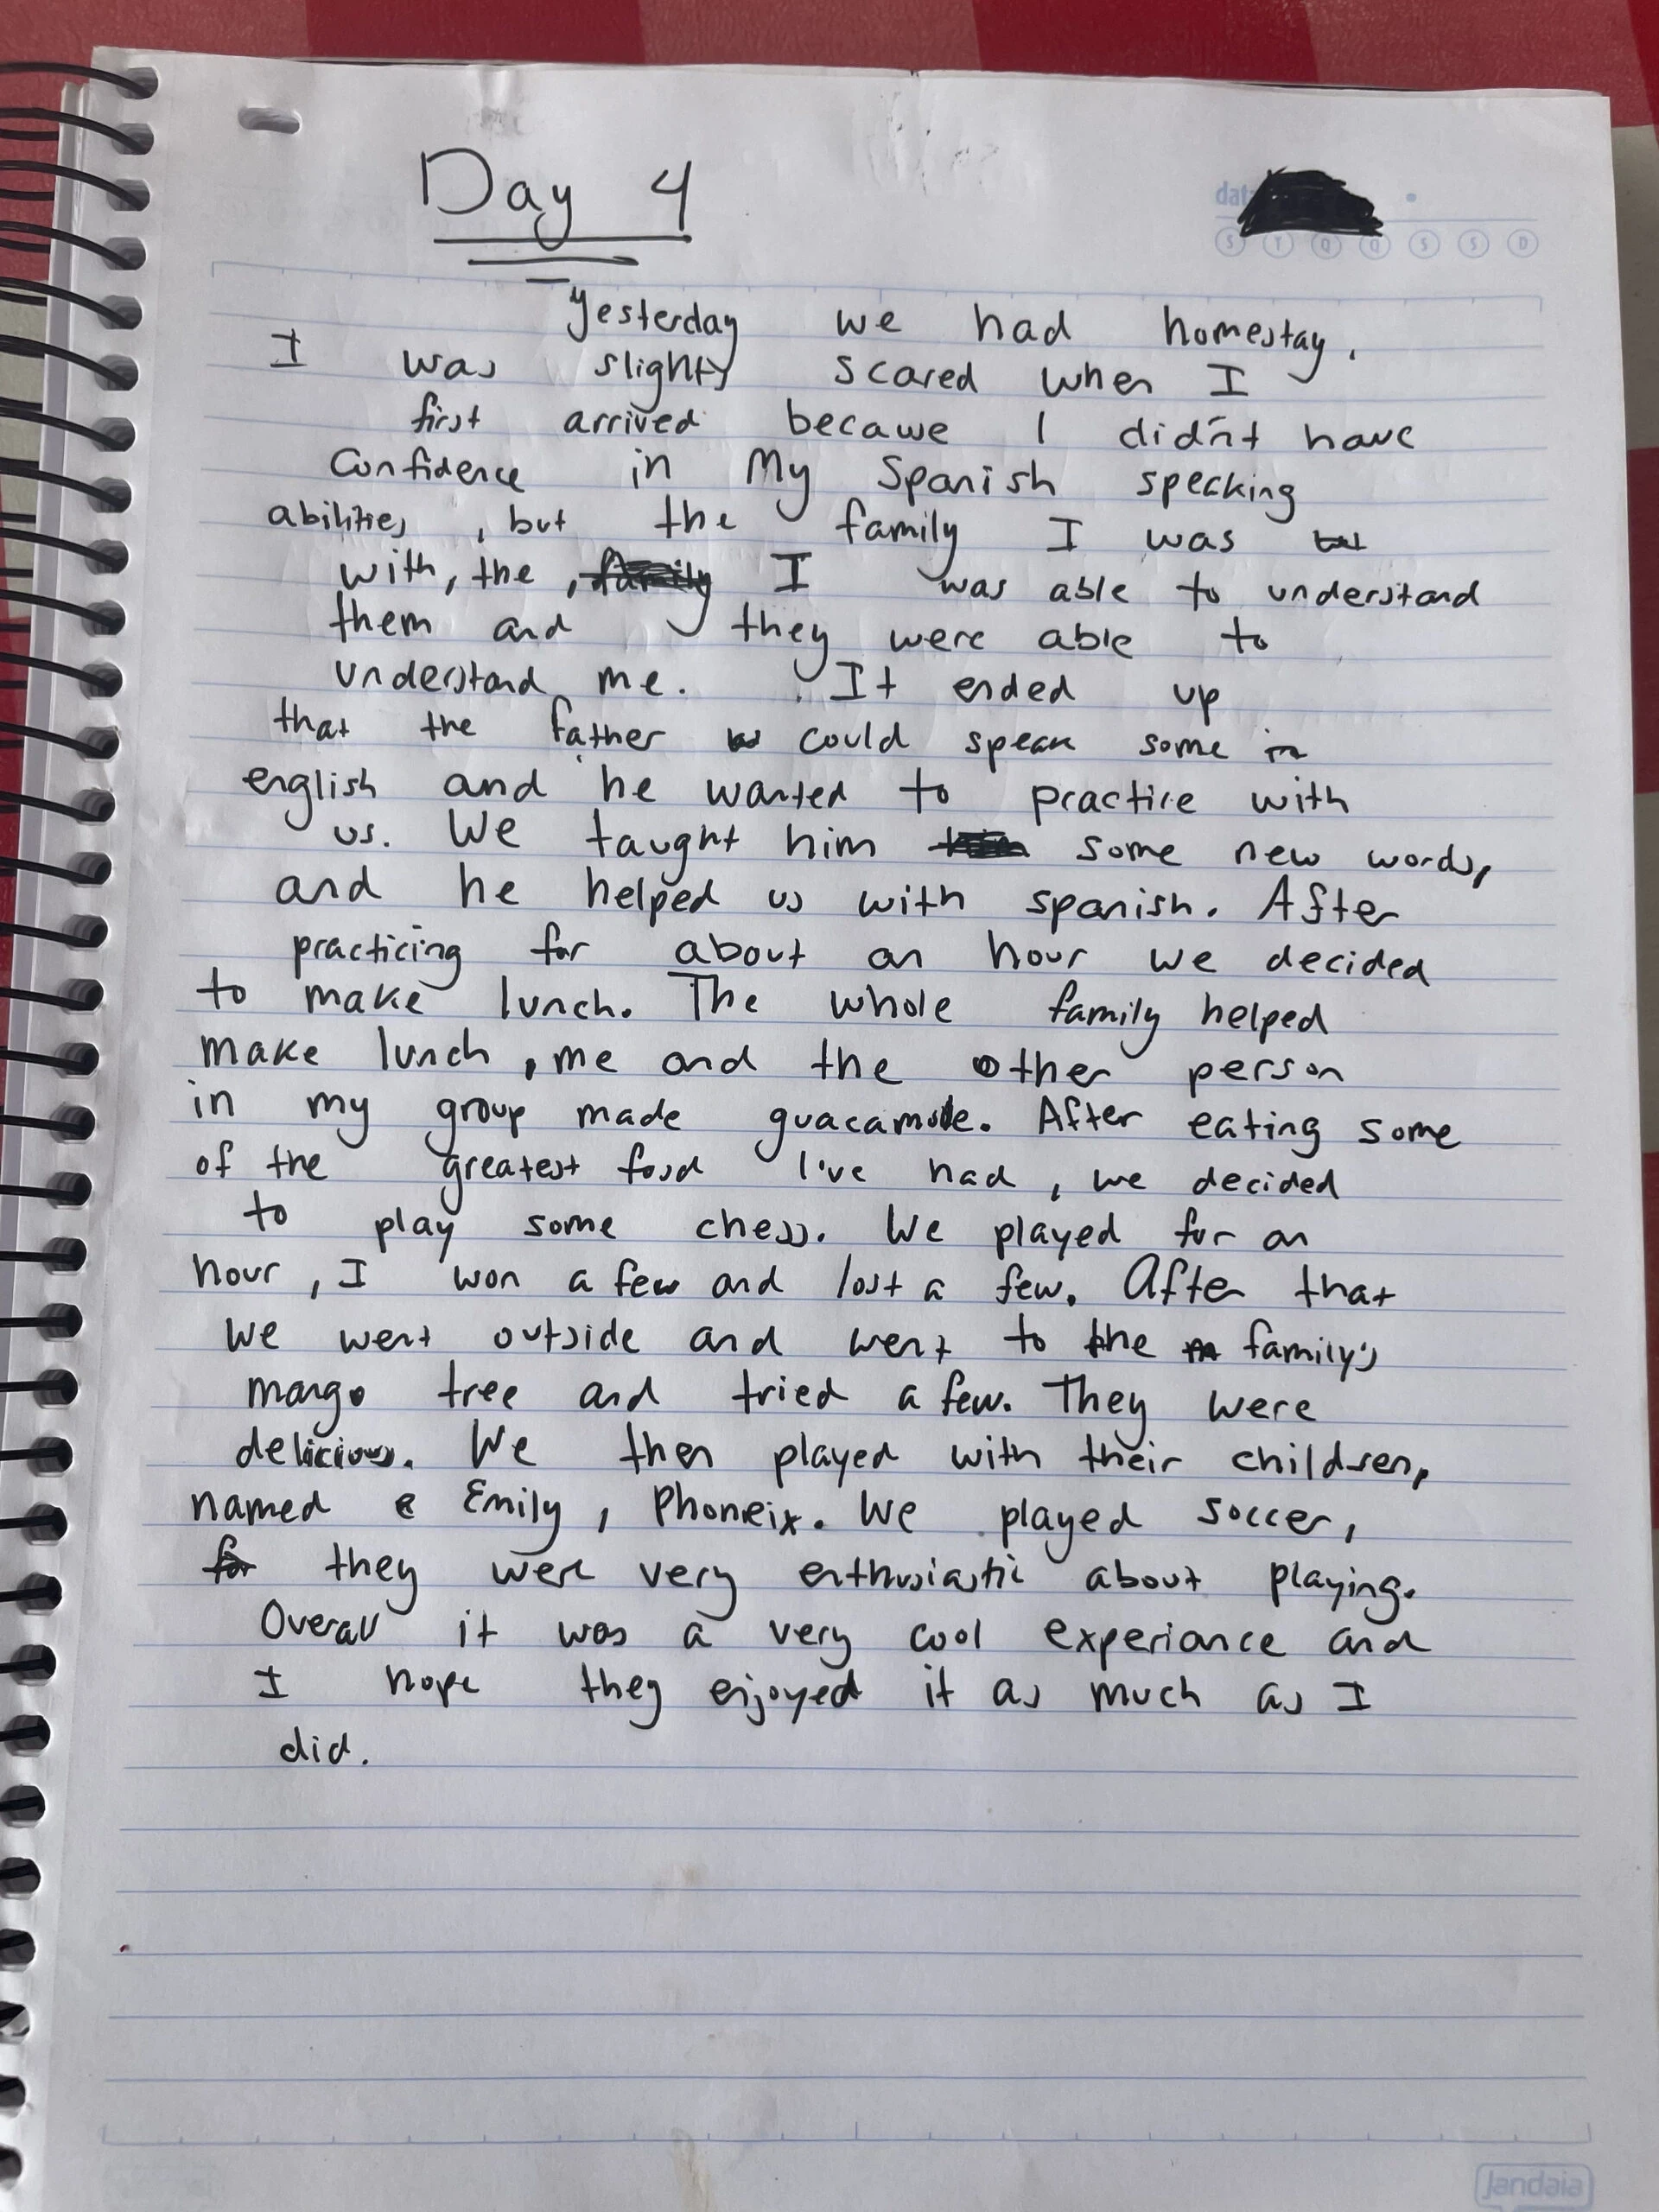 Day 4
data
S T Q Q S S D
Yesterday we had homestay.
I was slighty scared when I
first arrived because I didn't have
confidence in My Spanish speaking
abilities, but the family I was
with, the, family I was able to understand
them and they were able to
understand me. It ended up
that the father could speak some in
english and he wanted to practice with
us. We taught him some new words,
and he helped us with spanish. After
practicing for about an hour we decided
to make lunch. The whole family helped
make lunch, me and the other person
in my group made guacamole. After eating some
of the greatest food I've had, we decided
to play some chess. We played for an
hour, I won a few and lost a few. After that
we went outside and went to the family's
mango tree and tried a few. They were
delicious. We then played with their children,
named e Emily, Phoneix. We played soccer,
for they were very enthusiastic about playing.
Overall it was a very cool experiance and
I hope they enjoyed it as much as I
did.
Jandaia